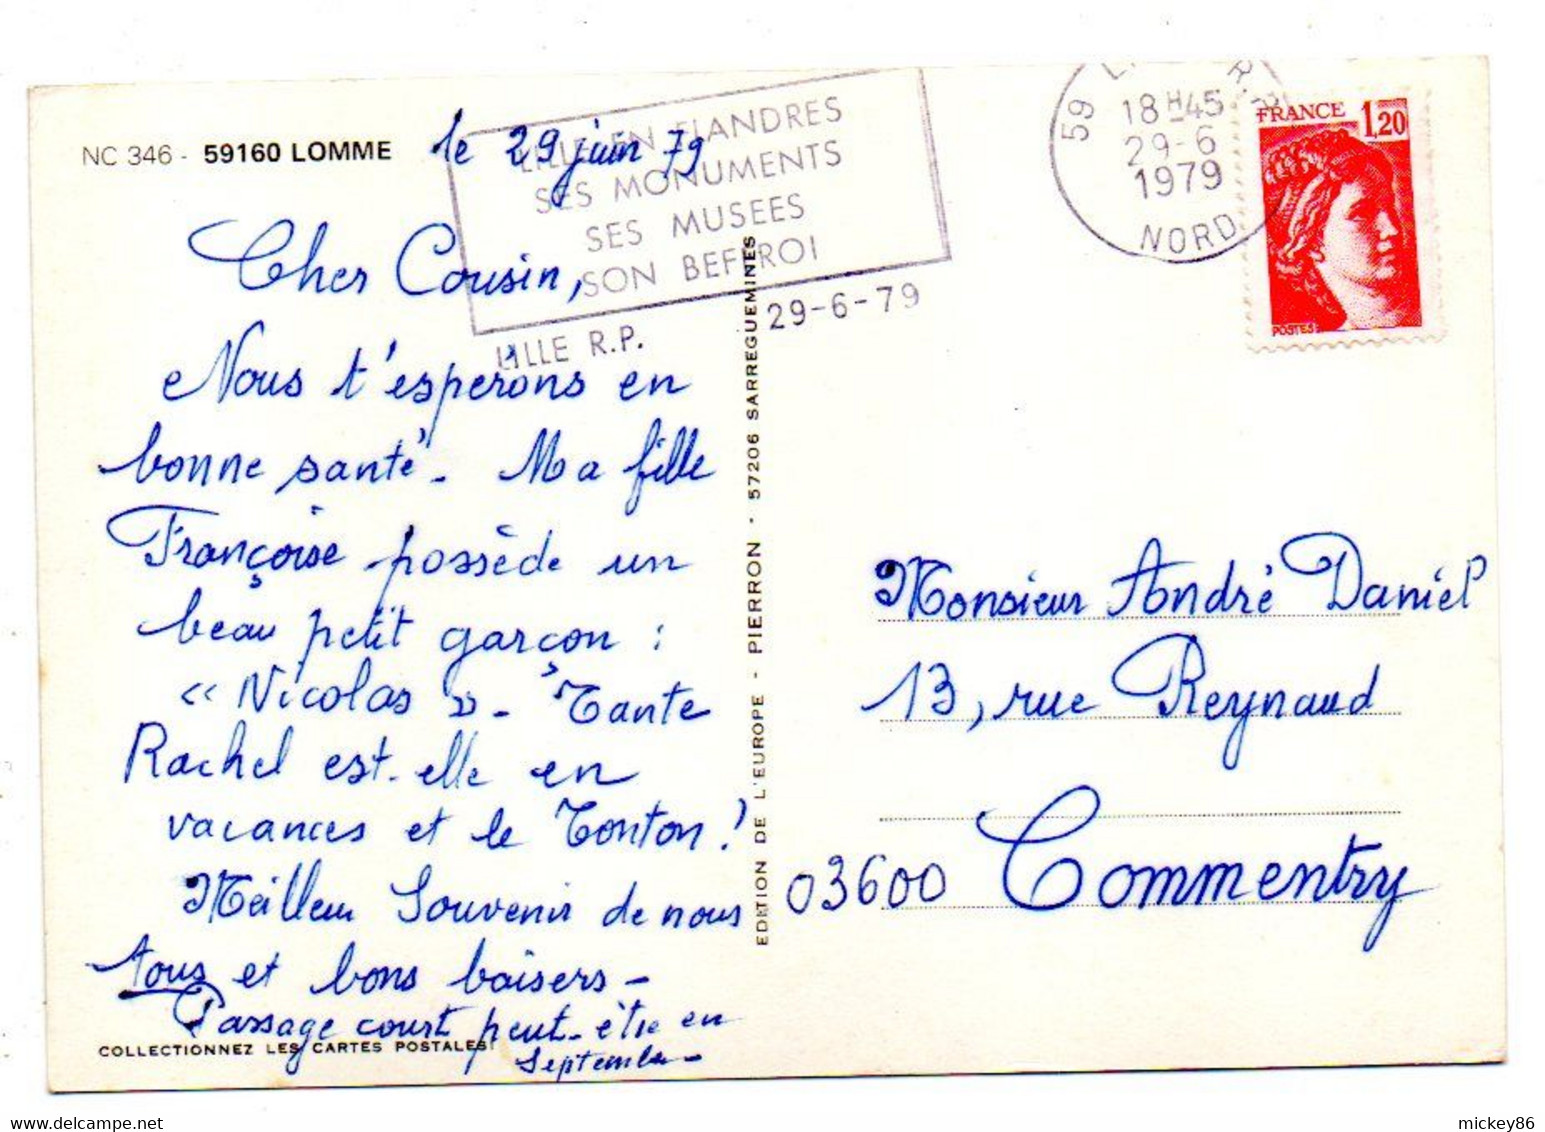 NC 346 - 59160 LOMME
le 29 juin 79
Cher Cousin,
Nous t'espérons en
bonne santé - Ma fille
Françoise possède un
beau petit garçon :
« Nicolas » - Tante
Rachel est-elle en
vacances et le Tonton !
Meilleur Souvenir de nous
tous et bons baisers -
Passage court peut-être en
Septembre -
COLLECTIONNEZ LES CARTES POSTALES
EN FLANDRES
SES MONUMENTS
SES MUSEES
SON BEFFROI
LILLE R.P.
29-6-79
EDITION DE L'EUROPE - PIERRON - 57206 SARREGUEMINES
59
18H45
29-6
1979
NORD
FRANCE 1,20
POSTES
Monsieur André Daniel
13, rue Reynaud
03600 Commentry
mickey86